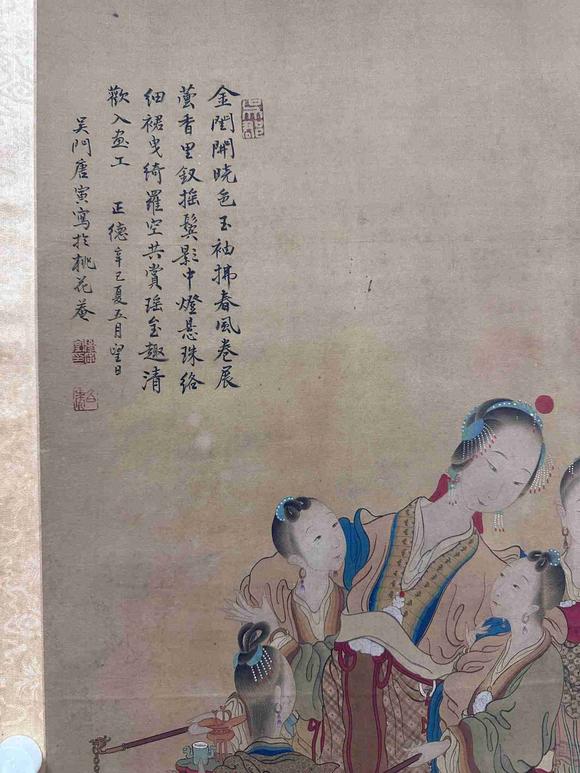 金閨開曉色玉袖拂春風卷展
蘭香里釵摇鬓影中燈悬珠络
细裙曳绮羅空共賞瑶台趣清
歡入画工　正德辛巳夏五月望日
吴門唐寅寫於桃花菴